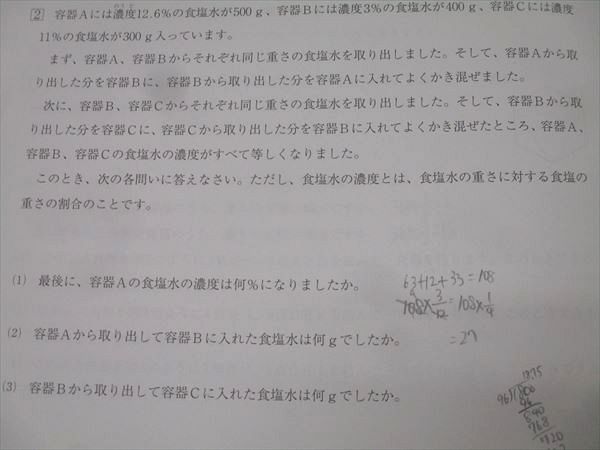 2 容器Aには濃度12.6%の食塩水が500g、容器Bには濃度3%の食塩水が400g、容器Cには濃度
11%の食塩水が300g入っています。
まず、容器A、容器Bからそれぞれ同じ重さの食塩水を取り出しました。そして、容器Aから取
り出した分を容器Bに、容器Bから取り出した分を容器Aに入れてよくかき混ぜました。
次に、容器B、容器Cからそれぞれ同じ重さの食塩水を取り出しました。そして、容器Bから取
り出した分を容器Cに、容器Cから取り出した分を容器Bに入れてよくかき混ぜたところ、容器A、
容器B、容器Cの食塩水の濃度がすべて等しくなりました。
このとき、次の各問いに答えなさい。ただし、食塩水の濃度とは、食塩水の重さに対する食塩の
重さの割合のことです。
(1) 最後に、容器Aの食塩水の濃度は何%になりましたか。
63+12+33=108
108×3/12=108×1/4
=27
(2) 容器Aから取り出して容器Bに入れた食塩水は何gでしたか。
(3) 容器Bから取り出して容器Cに入れた食塩水は何gでしたか。